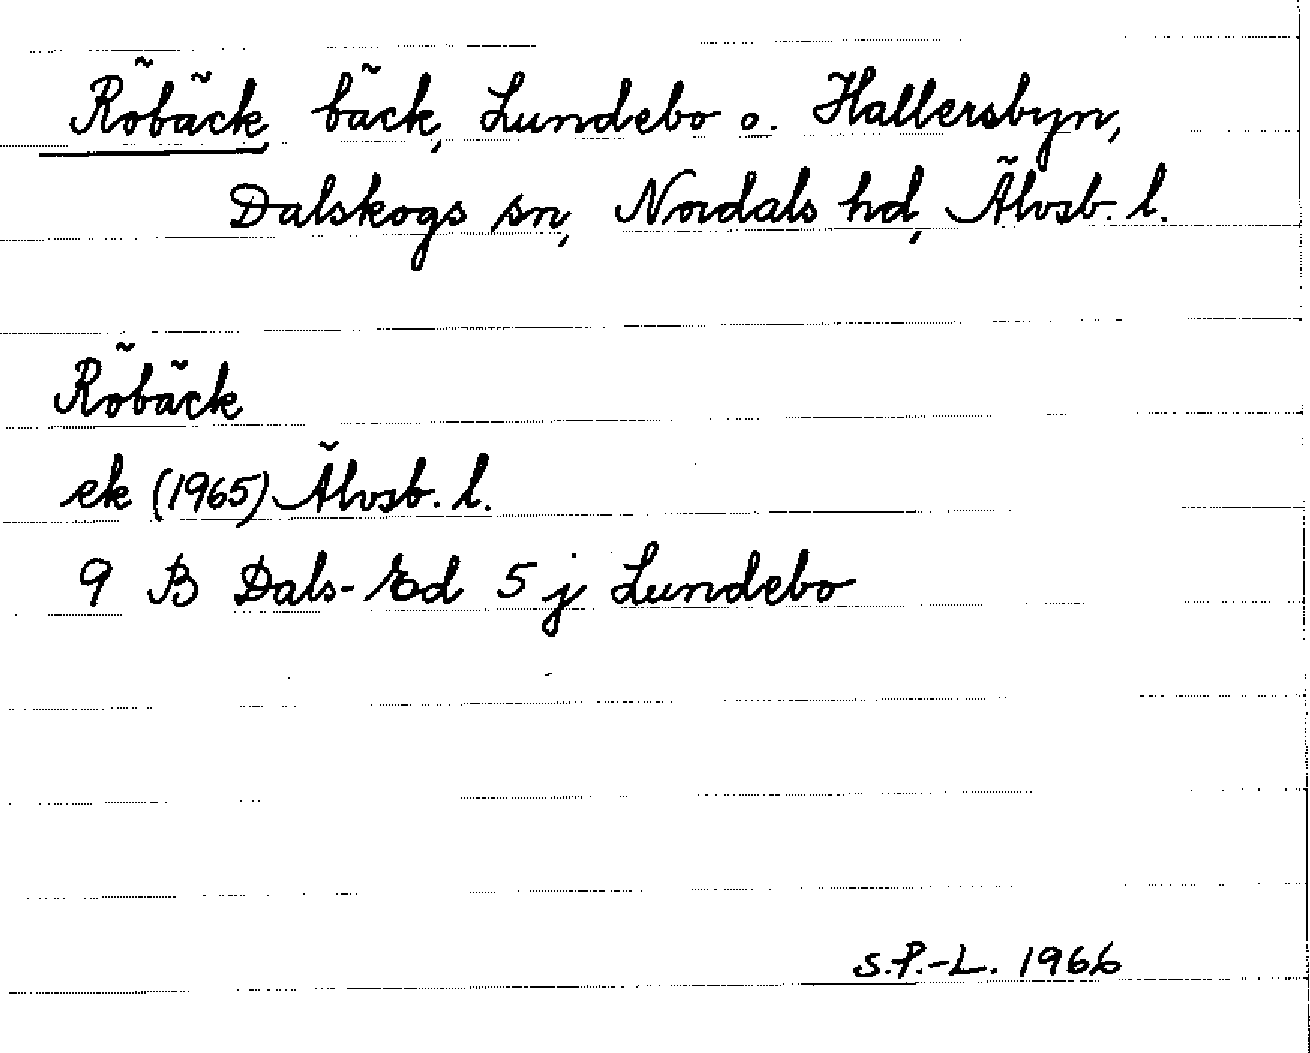 Röbäck bäck, Lundebo o. Hallersbyn,
Dalskogs sn, Nordals hd, Älvsb. l.
Röbäck
ek (1965) Älvsb. l.
9 B Dals-Ed 5 j Lundebo
S.P.-L. 1966